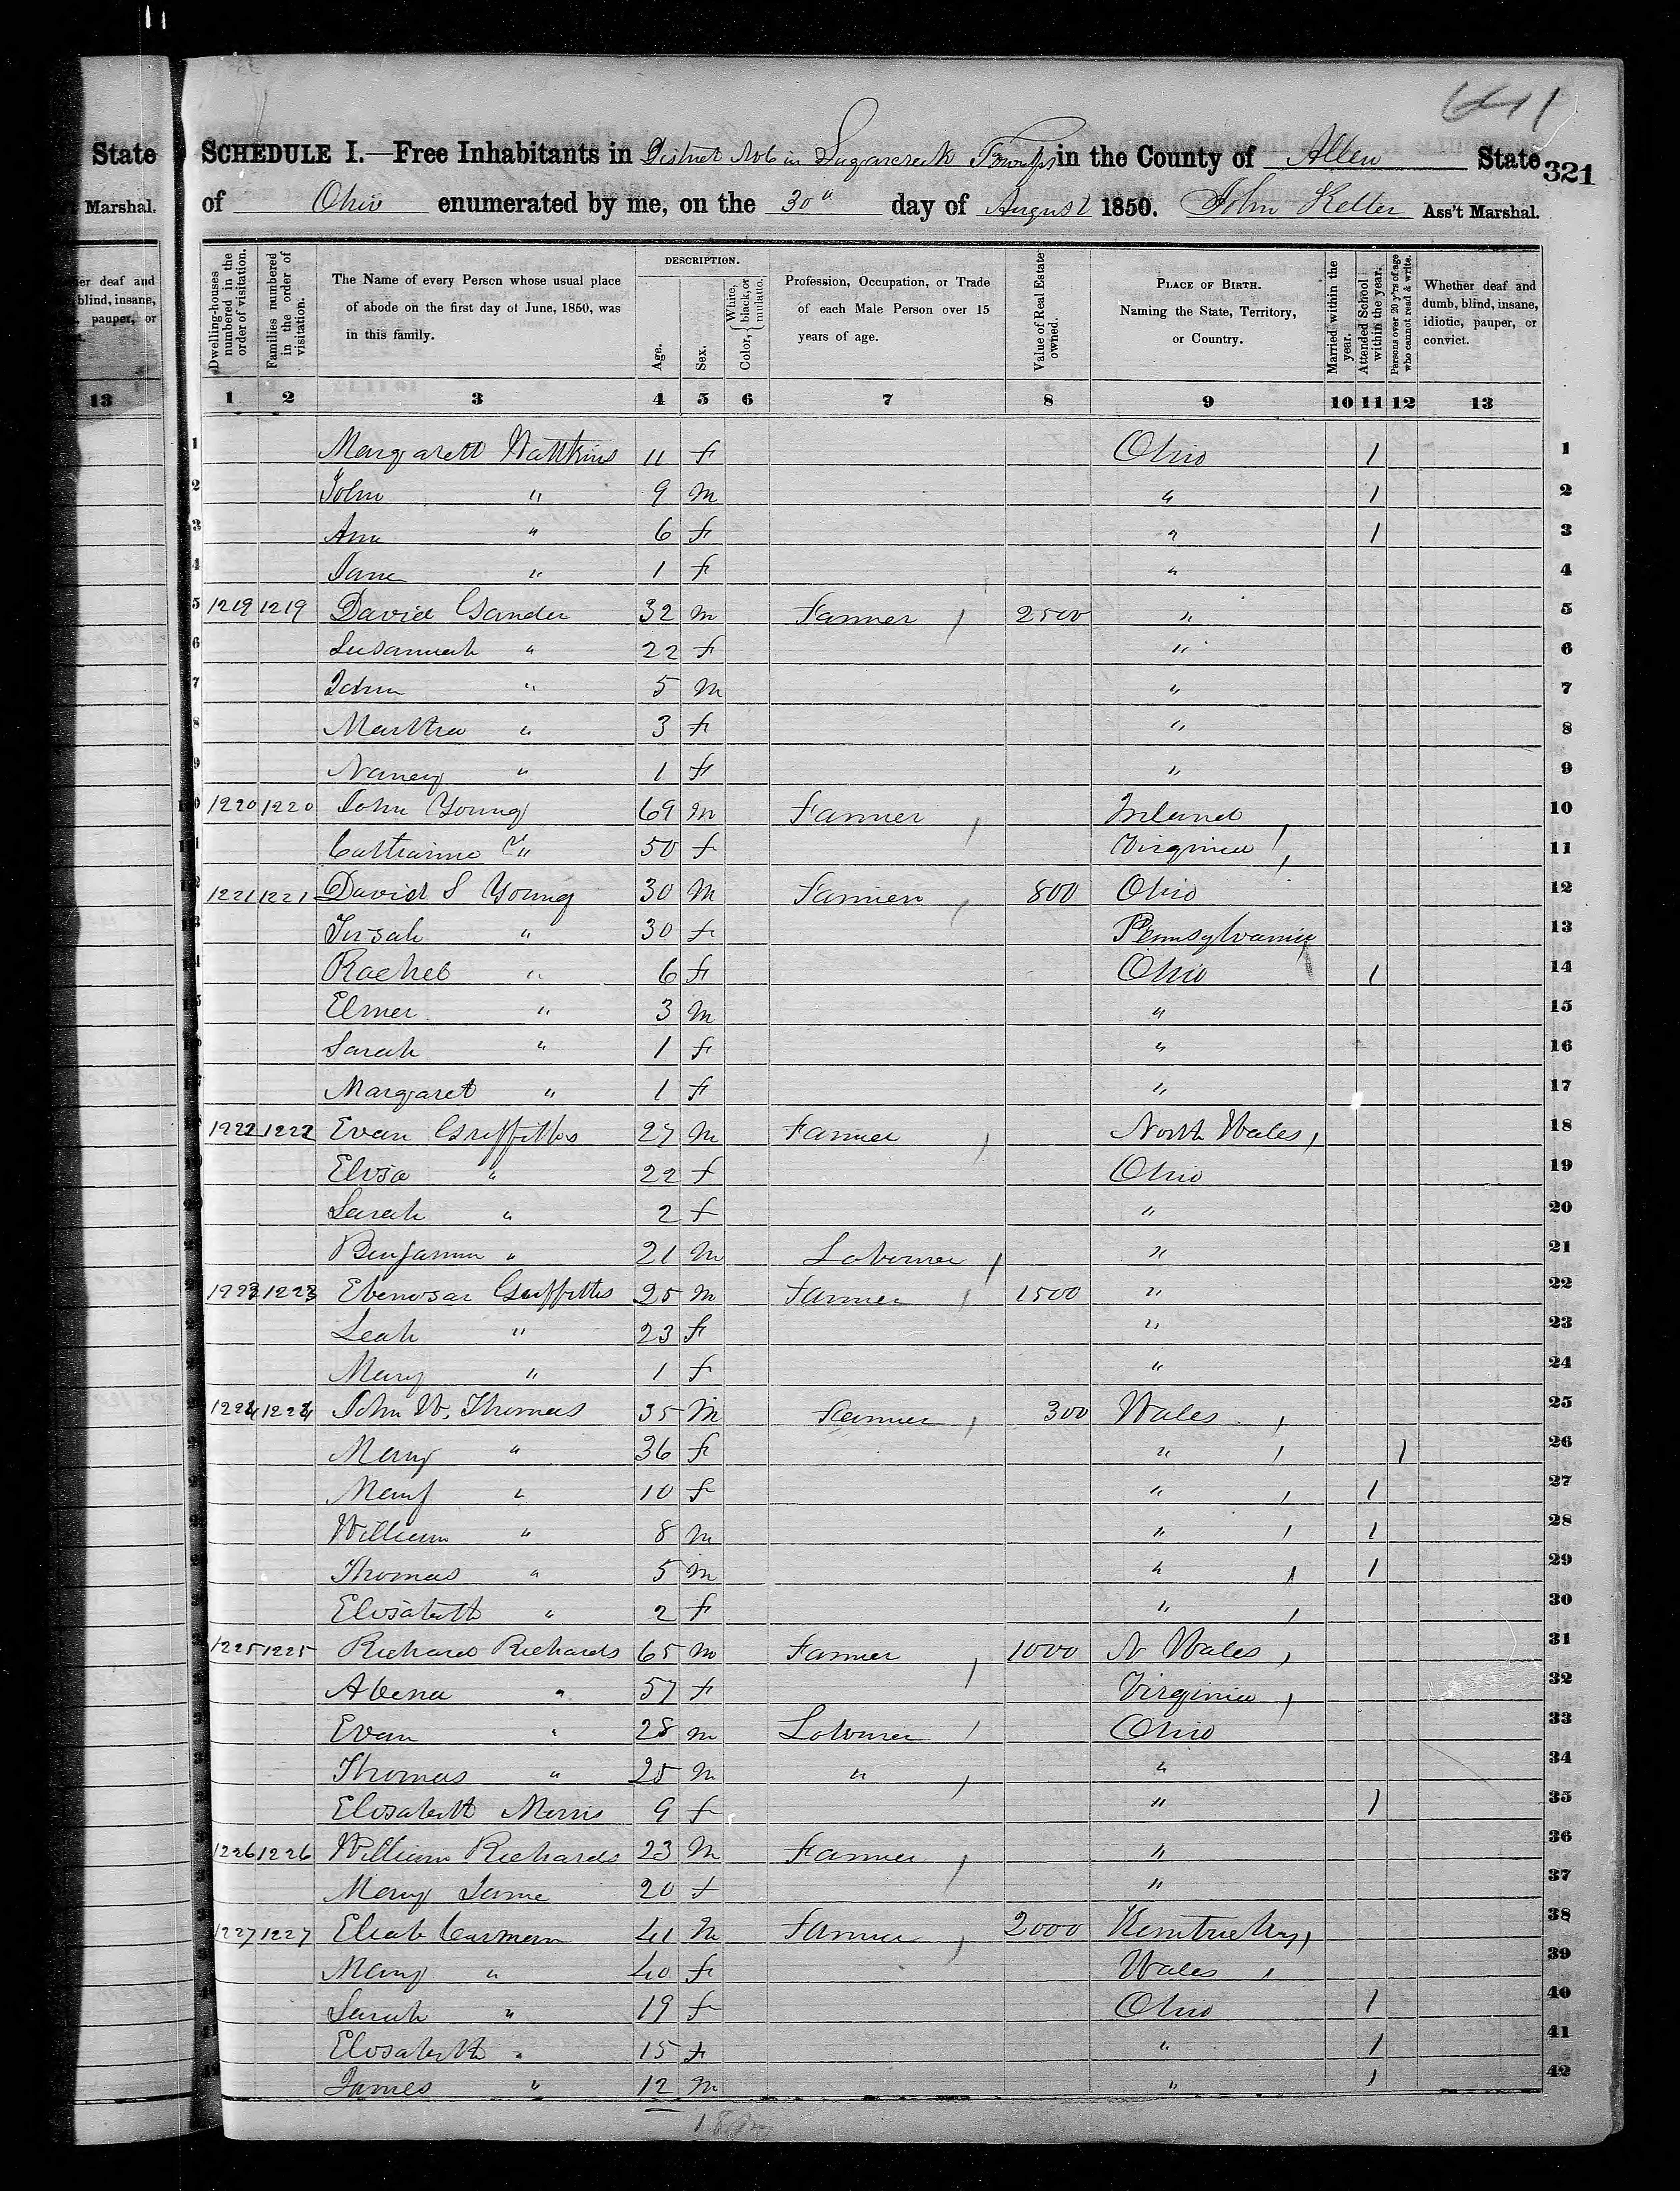 641
State SCHEDULE I.—Free Inhabitants in District No 6 in Sugarcreek Township in the County of Allen State 321
Marshal. of Ohio enumerated by me, on the 30" day of August 1850. John Keller Ass't Marshal.
Dwelling-houses numbered in the order of visitation.
Families numbered in the order of visitation.
The Name of every Person whose usual place of abode on the first day of June, 1850, was in this family.
DESCRIPTION.
Age.
Sex.
Color, { White, black, or mulatto.
Profession, Occupation, or Trade of each Male Person over 15 years of age.
Value of Real Estate owned.
PLACE OF BIRTH. Naming the State, Territory, or Country.
Married within the year.
Attended School within the year.
Persons over 20 y'rs of age who cannot read & write.
Whether deaf and dumb, blind, insane, idiotic, pauper, or convict.
13 1 2 3 4 5 6 7 8 9 10 11 12 13
1 Margarett Wattkins 11 f Ohio 1 1
2 John " 9 m " 1 2
3 Ann " 6 f " 1 3
4 Jane " 1 f " 4
5 1219 1219 David Gander 32 m Farmer 2500 " 5
6 Susannah " 22 f " 6
7 John " 5 m " 7
8 Martha " 3 f " 8
9 Nancy " 1 f " 9
1220 1220 John Young 69 m Farmer Ireland 10
Catharine " 50 f Virginia 11
1221 1221 David S Young 30 m Farmer 800 Ohio 12
Tirsah " 30 f Pennsylvania 13
Rachel " 6 f Ohio 1 14
Elmer " 3 m " 15
Sarah " 1 f " 16
Margaret " 1 f " 17
1222 1222 Evan Griffiths 27 m Farmer North Wales 18
Elisa " 22 f Ohio 19
Sarah " 2 f " 20
Benjamin " 21 m Labourer " 21
1223 1223 Ebenosar Griffiths 25 m Farmer 1500 " 22
Leah " 23 f " 23
Mary " 1 f " 24
1224 1224 John W. Thomas 35 m Farmer 300 Wales 25
Mary " 36 f " 1 26
Mary " 10 f " 1 27
William " 8 m " 1 28
Thomas " 5 m " 1 29
Elisabeth " 2 f " 30
1225 1225 Richard Richards 65 m Farmer 1000 N Wales 31
Abena " 57 f Virginia 32
Evan " 28 m Labourer Ohio 33
Thomas " 25 m " " 34
Elisabeth Morris 9 f " 1 35
1226 1226 William Richards 23 m Farmer " 36
Mary Jane 20 f " 37
1227 1227 Eliab Carman 41 m Farmer 2000 Kentucky 38
Mary " 40 f Wales 39
Sarah " 19 f Ohio 1 40
Elisabeth " 15 f " 1 41
James " 12 m " 1 42